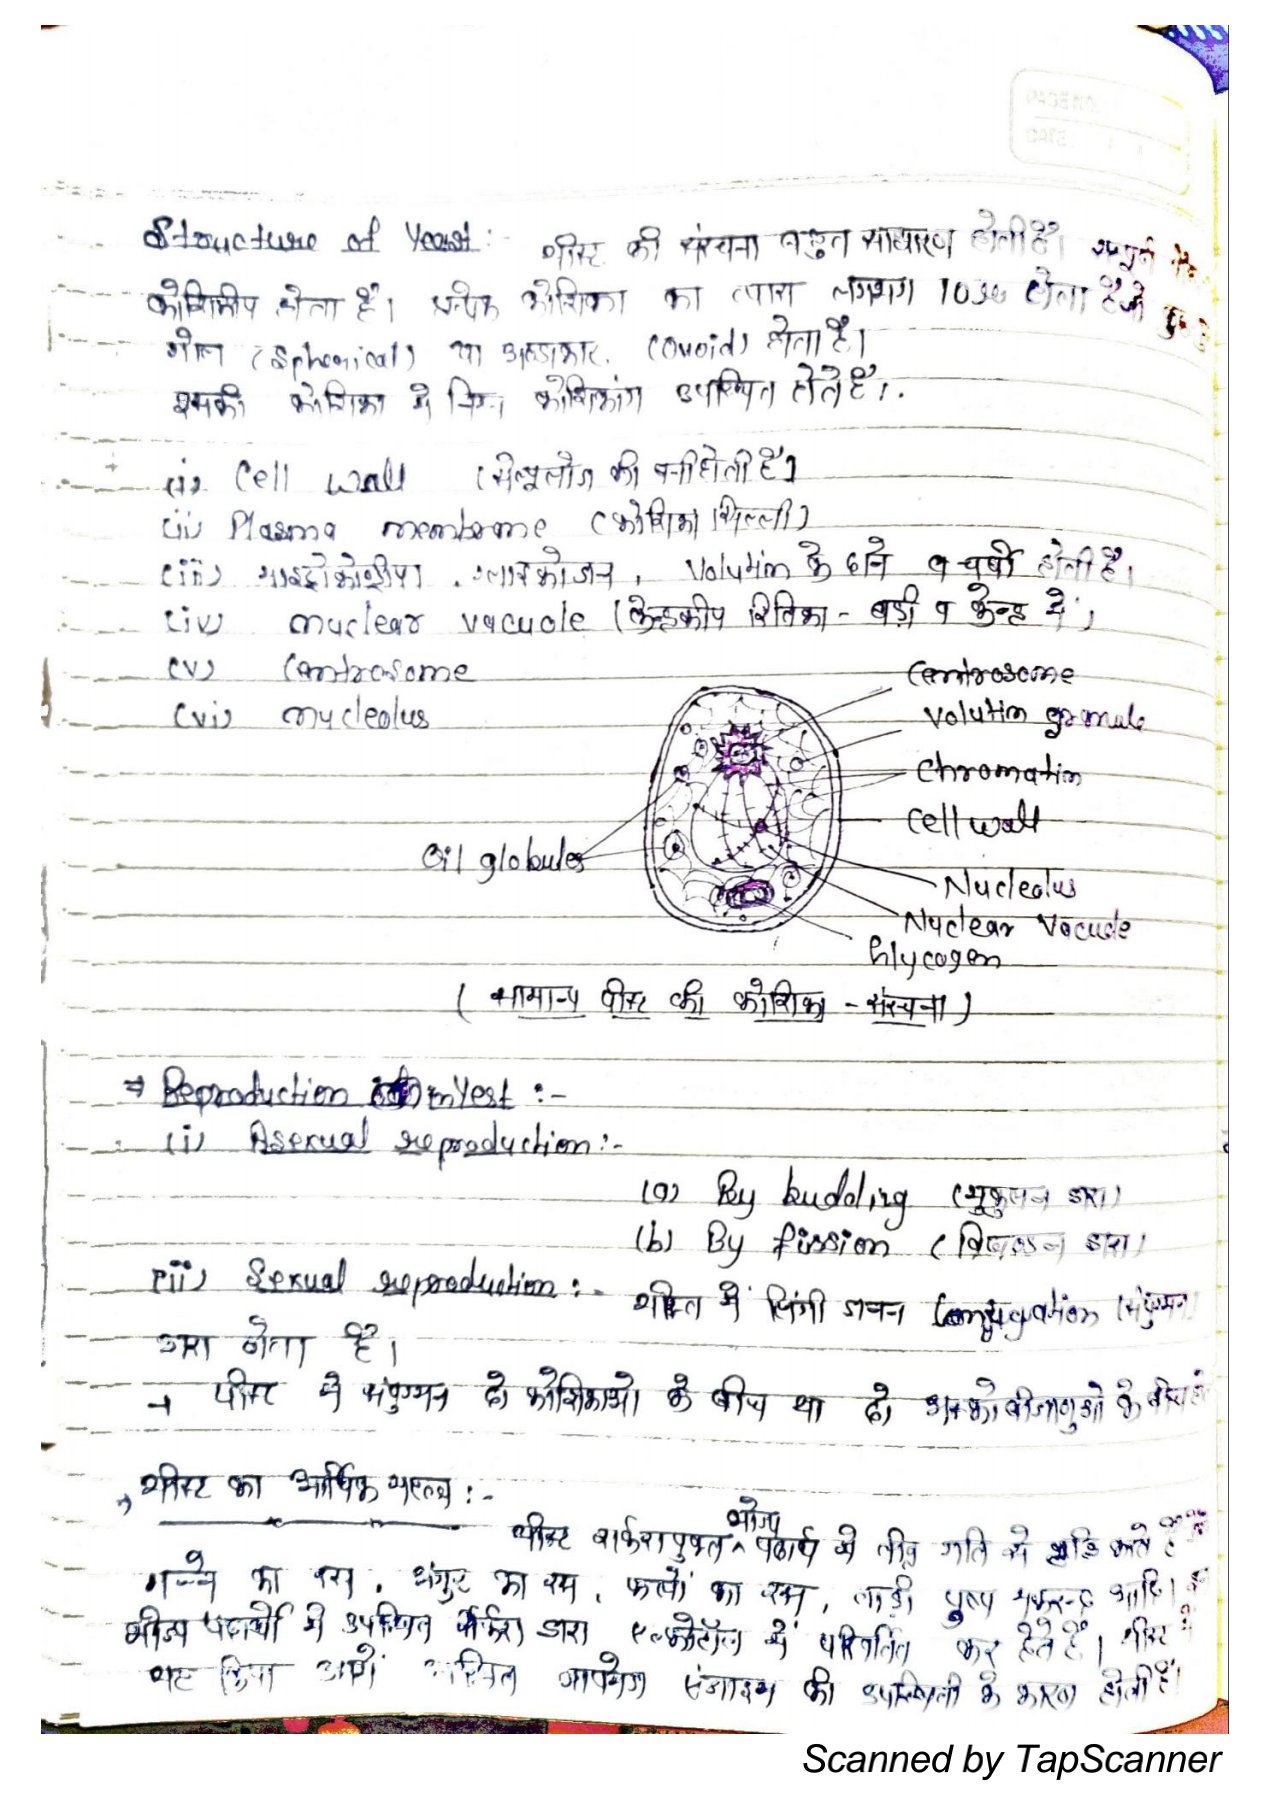 Structure of Yeast :- यीस्ट की संरचना बहुत साधारण होती है।
कोशिकीय होता है। प्रत्येक कोशिका का व्यास लगभग 10 होता है जो
गोल (Spherical) या अण्डाकार (Ovoid) होता है।
इसकी कोशिका में निम्न कोशिकांग उपस्थित होते है।
(i) Cell wall (सेल्यूलोज की बनी होती है)
(ii) Plasma membrane (कोशिका झिल्ली)
(iii) ग्लाइकोजन, Volutin के दाने व चर्बी होती है।
(iv) nuclear vacuole (केन्द्रकीय रितिका - बड़ी व केन्द्र में)
(v) Centrosome
(vi) nucleolus
Centrosome
Volutin granule
Chromatin
Cell wall
Oil globules
Nucleolus
Nuclear Vacuole
Glycogen
(सामान्य यीस्ट की कोशिका - संरचना)
⇒ Reproduction in Yest :-
(i) Asexual reproduction :-
(a) By budding (मुकुलन द्वारा)
(b) By fission (विखण्डन द्वारा)
(ii) Sexual reproduction :- यीस्ट में लिंगी जनन Conjugation (संयुग्मन
द्वारा होता है।
→ यीस्ट में संयुग्मन दो कोशिकाओ के बीच या दो अस्कोबीजाणुओ के बीच
यीस्ट का आर्थिक महत्व :-
यीस्ट शर्करायुक्त भोज्य पदार्थ में तीव्र गति से वृद्धि करते है
गन्ने का रस, अंगूर का रस, फलों का रस, ताड़ी, पुष्प मकरन्द आदि।
भोज्य पदार्थो में उपस्थित शर्करा द्वारा एल्कोहॉल में परिवर्तित कर देते हैं। यीस्ट में
यह क्रिया जायमेज एंजाइम की उपस्थिती के कारण होती है।
Scanned by TapScanner